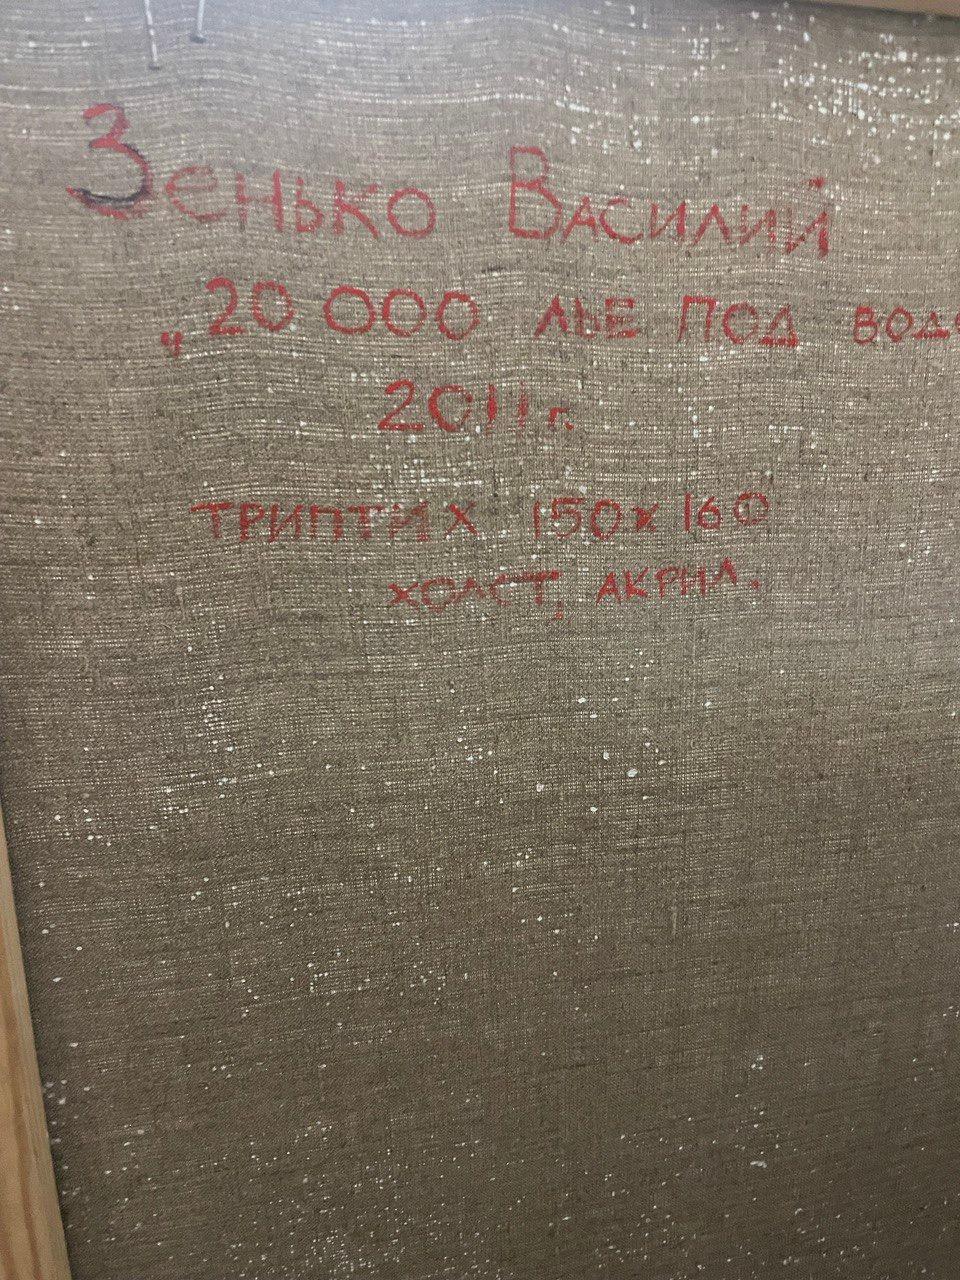 Зенько Василий
„20 000 лье под водо
2011 г.
триптих 150х160
холст, акрил.